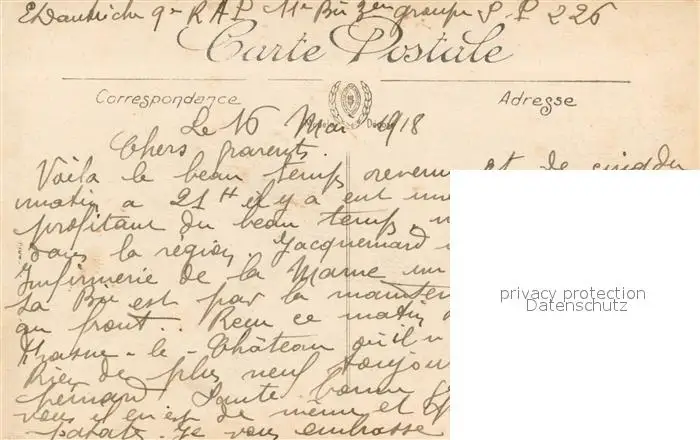 E Dautriche 9e R A P 11e Bie Zen groupe S. P 226
Carte Postale
Correspondance
Adresse
Le 16 Mai 1918
Chers parents.
Voila le beau temps revenu et de cinq du
matin a 21H il y a eut une
profitant du beau temps.
dans la région. Jacquemard
Infirmerie de la Marne un
sa Bie est par la maintenant
au front.. Recu ce matin
le - Château qu'il
Rien de plus neuf toujours
pénard Sante bonne
vous il en est de même et
patate. Je vous embrasse
privacy protection
Datenschutz